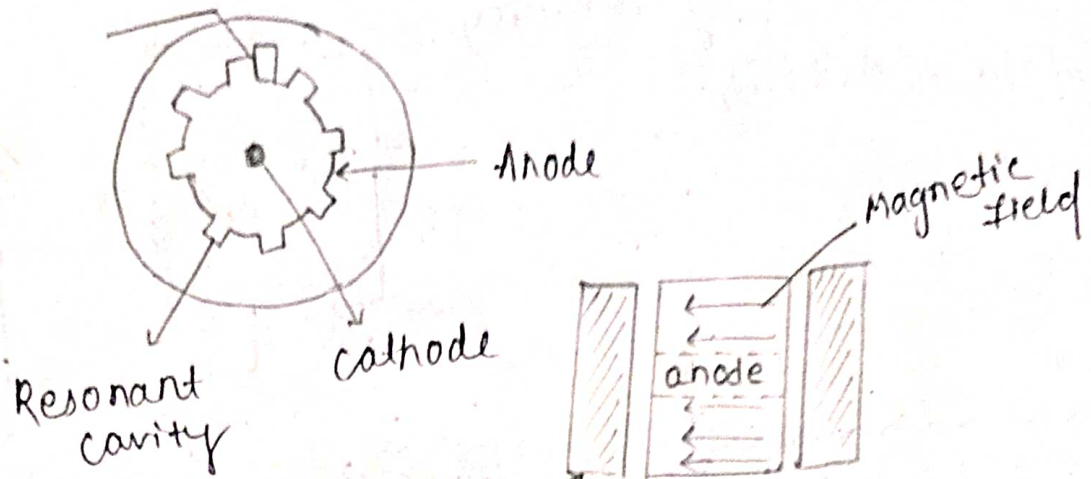 Anode
Magnetic
field
Cathode
Resonant
cavity
anode